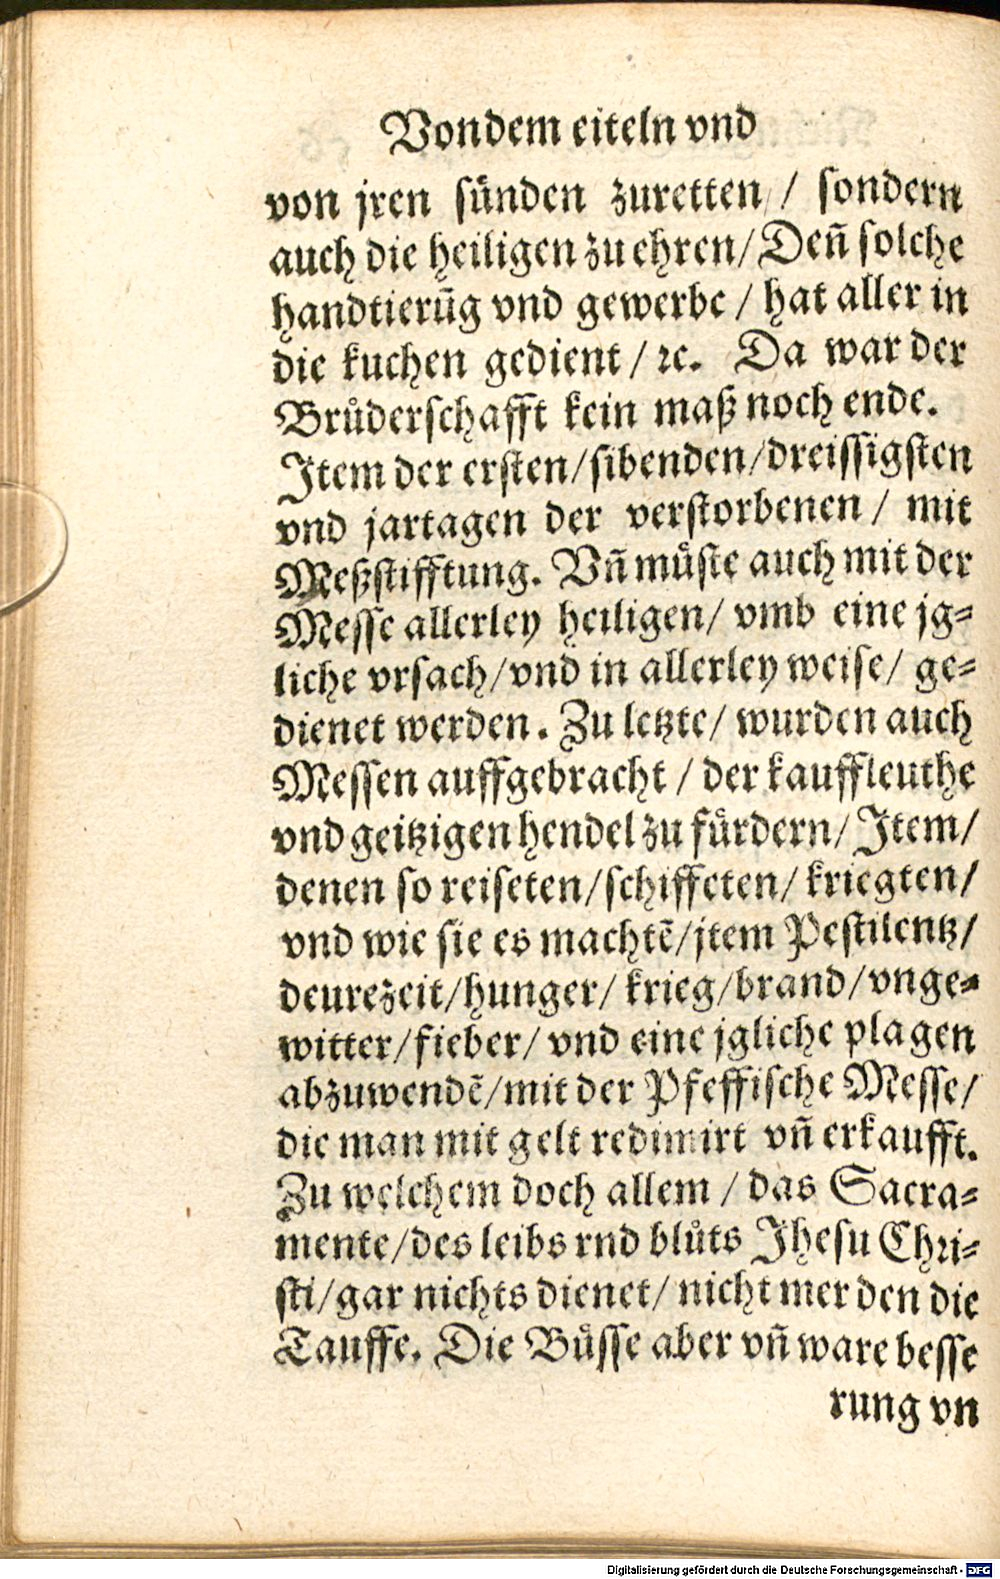 Von dem eiteln vnd
von jren sünden zuretten / sondern
auch die heiligen zu ehren / Deñ solche
handtierũg vnd gewerbe / hat aller in
die kuchen gedient / ꝛc. Da war der
Brůderschafft kein maß noch ende.
Item der ersten / sibenden / dreissigsten
vnd jartagen der verstorbenen / mit
Meßstifftung. Vñ můste auch mit der
Messe allerley heiligen / vmb eine jg=
liche vrsach / vnd in allerley weise / ge=
dienet werden. Zu letzte / wurden auch
Messen auffgebracht / der kauffleuthe
vnd geitzigen hendel zu fürdern / Item /
denen so reiseten / schiffeten / kriegten /
vnd wie sie es machtẽ / jtem Pestilentz /
deurezeit / hunger / krieg / brand / vnge=
witter / fieber / vnd eine jgliche plagen
abzuwendẽ / mit der Pfeffische Messe /
die man mit gelt redimirt vñ erkaufft.
Zu welchem doch allem / das Sacra=
mente / des leibs rnd blůts Jhesu Chri=
sti / gar nichts dienet / nicht mer den die
Tauffe. Die Bůsse aber vñ ware besse
rung vn
Digitalisierung gefördert durch die Deutsche Forschungsgemeinschaft - DFG